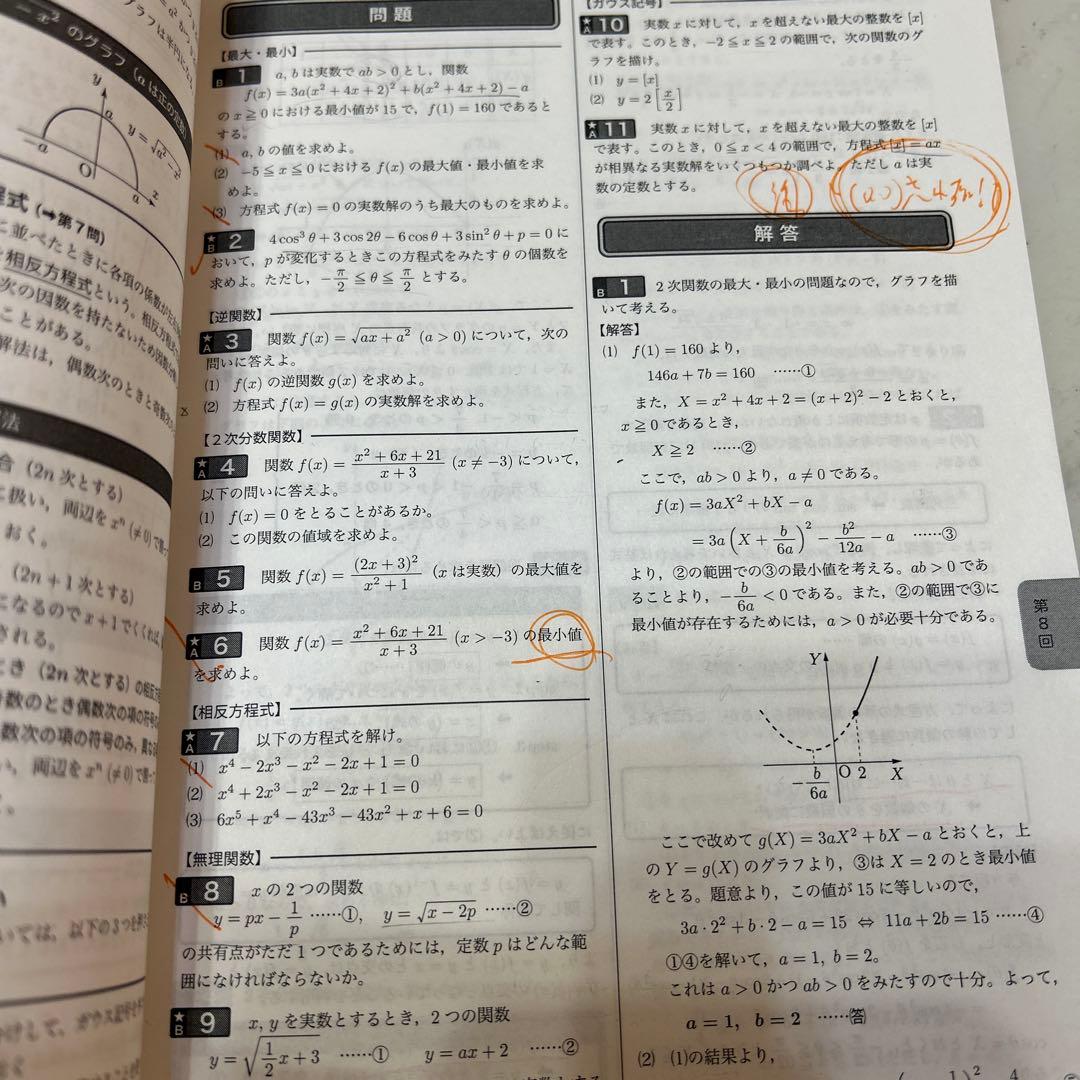 - x² のグラフ (a は正の定数)
y
a
y = √a² - x²
O
a
x
程式 (➡第7問)
に並べたときに各項の係数が左右
相反方程式という。相反方程
次の因数を持たないため因数分
ことがある。
解法は、偶数次のときと奇数次の
法
合 (2n 次とする)
に扱い, 両辺を xⁿ (≠0) で割っ
おく。
(2n + 1 次とする)
になるので x+1 でくくれば,
される。
とき (2n 次とする) の相反
分数のとき偶数次の項の符号の
数次の項の符号のみ, 異なる
い, 両辺を xⁿ (≠0) で割っ
いては, 以下の3つを
問題
【最大・最小】
B 1 a, b は実数で ab > 0 とし, 関数
f(x) = 3a(x² + 4x + 2)² + b(x² + 4x + 2) - a
の x ≧ 0 における最小値が 15 で, f(1) = 160 であると
する。
(1) a, b の値を求めよ。
(2) -5 ≦ x ≦ 0 における f(x) の最大値・最小値を求
めよ。
(3) 方程式 f(x) = 0 の実数解のうち最大のものを求めよ。
★B 2 4cos³θ + 3cos2θ - 6cosθ + 3sin²θ + p = 0 に
おいて, p が変化するときこの方程式をみたす θ の個数を
求めよ。ただし, -π/2 ≦ θ ≦ π/2 とする。
【逆関数】
★A 3 関数 f(x) = √ax + a² (a > 0) について, 次の
問いに答えよ。
(1) f(x) の逆関数 g(x) を求めよ。
(2) 方程式 f(x) = g(x) の実数解を求めよ。
【2次分数関数】
★A 4 関数 f(x) = (x² + 6x + 21)/(x + 3) (x ≠ -3) について,
以下の問いに答えよ。
(1) f(x) = 0 をとることがあるか。
(2) この関数の値域を求めよ。
B 5 関数 f(x) = (2x + 3)²/(x² + 1) (x は実数) の最大値を
求めよ。
★A 6 関数 f(x) = (x² + 6x + 21)/(x + 3) (x > -3) の最小値
を求めよ。
【相反方程式】
★A 7 以下の方程式を解け。
(1) x⁴ - 2x³ - x² - 2x + 1 = 0
(2) x⁴ + 2x³ - x² - 2x + 1 = 0
(3) 6x⁵ + x⁴ - 43x³ - 43x² + x + 6 = 0
【無理関数】
B 8 x の2つの関数
y = px - 1/p ……①, y = √x - 2p ……②
の共有点がただ1つであるためには, 定数 p はどんな範
囲になければならないか。
★B 9 x, y を実数とするとき, 2つの関数
y = √(1/2)x + 3 ……① y = ax + 2 ……②
【ガウス記号】
★A 10 実数 x に対して, x を超えない最大の整数を [x]
で表す。このとき, -2 ≦ x ≦ 2 の範囲で, 次の関数のグ
ラフを描け。
(1) y = [x]
(2) y = 2[x/2]
★A 11 実数 x に対して, x を超えない最大の整数を [x]
で表す。このとき, 0 ≦ x < 4 の範囲で, 方程式 [x] = ax
が相異なる実数解をいくつもつか調べよ。ただし a は実
数の定数とする。
解答
B 1 2次関数の最大・最小の問題なので, グラフを描
いて考える。
【解答】
(1) f(1) = 160 より,
146a + 7b = 160 ……①
また, X = x² + 4x + 2 = (x + 2)² - 2 とおくと,
x ≧ 0 であるとき,
X ≧ 2 ……②
ここで, ab > 0 より, a ≠ 0 である。
f(x) = 3aX² + bX - a
= 3a(X + b/6a)² - b²/12a - a ……③
より, ②の範囲での③の最小値を考える。ab > 0 であ
ることより, -b/6a < 0 である。また, ②の範囲で③に
最小値が存在するためには, a > 0 が必要十分である。
Y
-b/6a
O 2
X
ここで改めて g(X) = 3aX² + bX - a とおくと, 上
の Y = g(X) のグラフより, ③は X = 2 のとき最小値
をとる。題意より, この値が 15 に等しいので,
3a・2² + b・2 - a = 15 ⇔ 11a + 2b = 15 ……④
①④を解いて, a = 1, b = 2。
これは a > 0 かつ ab > 0 をみたすので十分。よって,
a = 1, b = 2 ……㊎答
(2) (1)の結果より,
第8回